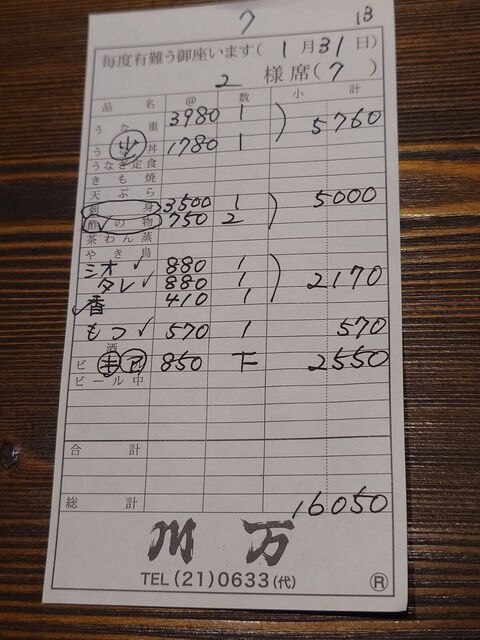 7 13
毎度有難う御座います( 1 月 31 日)
2 様席( 7 )
品 名 @ 数 小 計
うな重 3980 1 5760
うな丼 少 1780 1
うなぎ定食
きも焼
天ぷら
刺身 3500 1 5000
酢の物 750 2
茶わん蒸
やき鳥
シオ ✓ 880 1 2170
タレ ✓ 880 1
✓香 410 1
もつ ✓ 570 1 570
酒
ビ 850 下 2550
ビール中
合計
総計 16050
川万
TEL (21) 0633 (代) ®